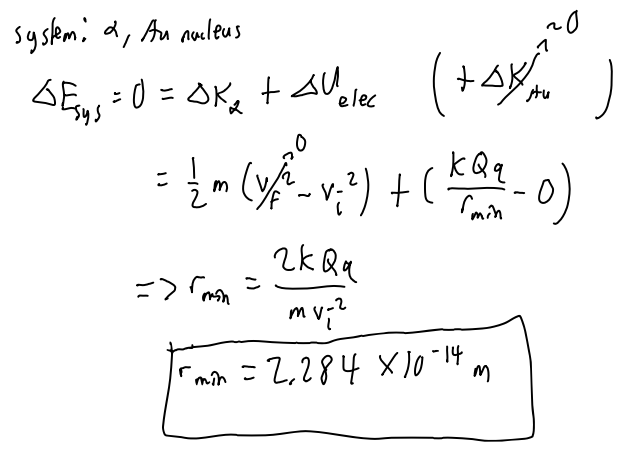 system: α, Au nucleus
ΔE_sys = 0 = ΔK_α + ΔU_elec (+ ΔK_Au → ~0)
= 1/2 m (v_f² → 0 - v_i²) + (kQq/r_min - 0)
=> r_min = 2kQq/mv_i²
r_min = 2.284 × 10⁻¹⁴ m